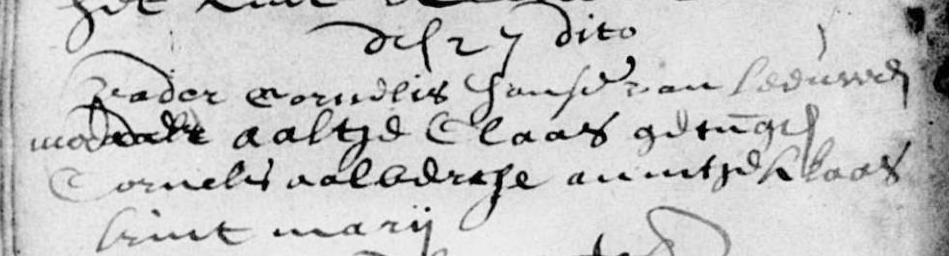 den 27 dito
vader Cornelis hanse van leeuwen
moeder aaltje Claas getugen
Cornelis aalbertse annitje klaas
kint marij